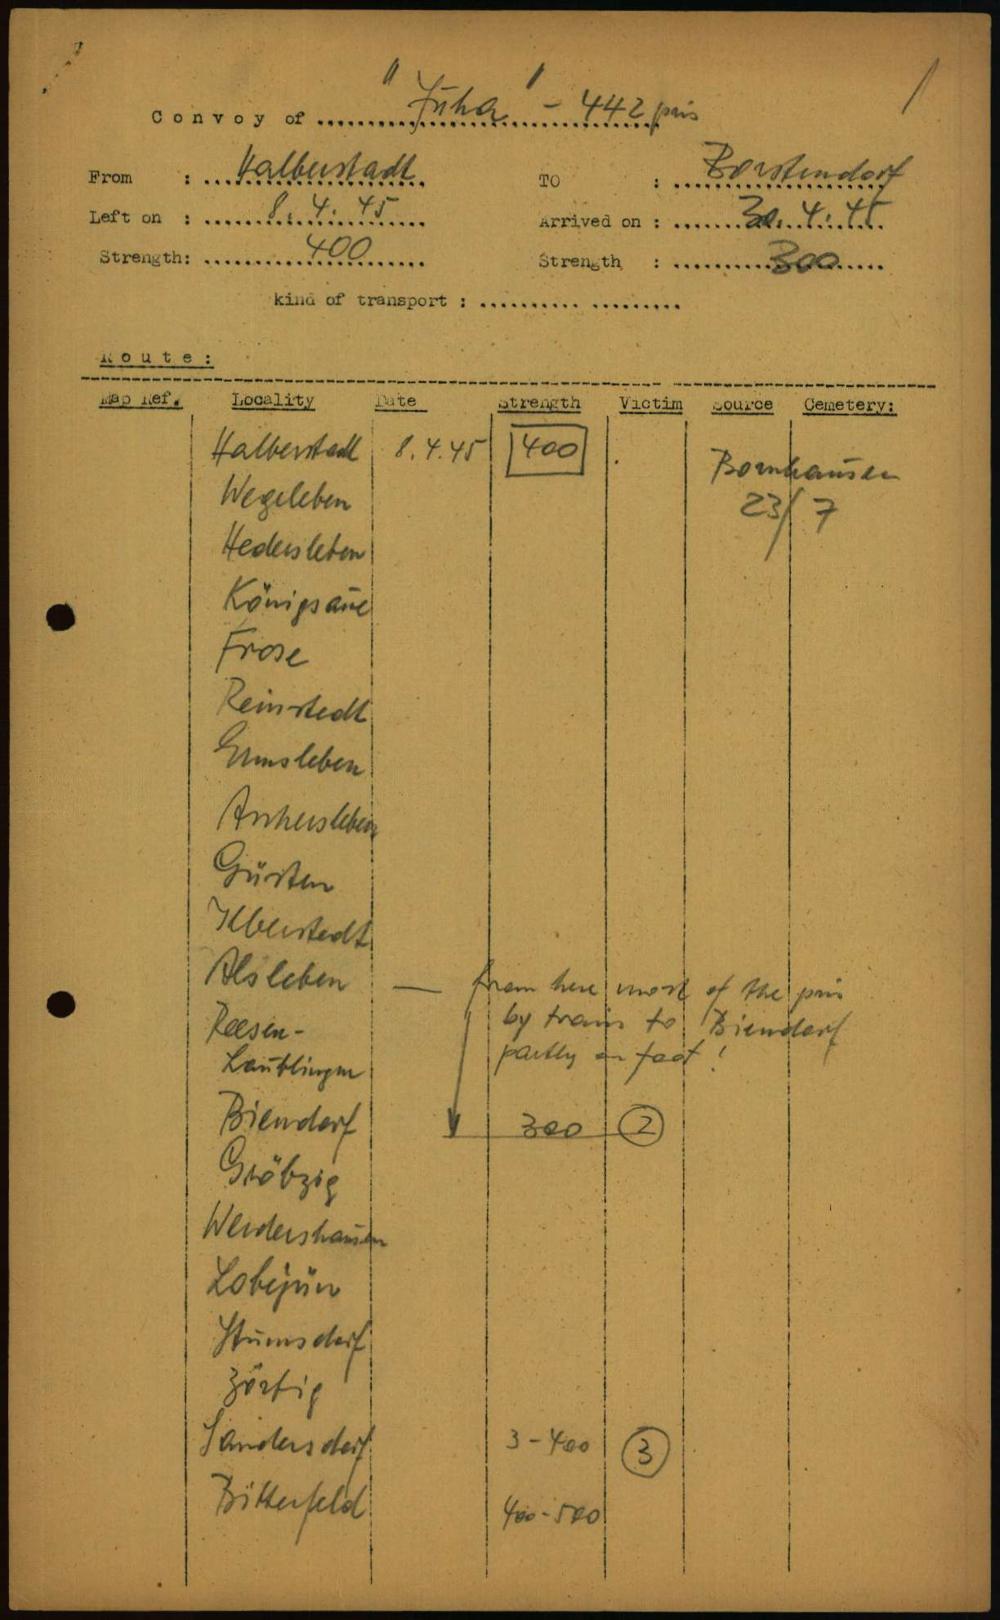 Convoy of "Juha" - 442 pris
From : Halberstadt TO : Borstendorf
Left on : 8. 4. 45 Arrived on : 30. 4. 45
Strength: 400 Strength : 300
kind of transport : .......... .........
Route:
Map Ref. Locality Date Strength Victim Source Cemetery:
Halberstadt 8.4.45 400 Bornhausen
Wegeleben 23/7
Hedersleben
Königsaue
Frose
Reinstedt
Ermsleben
Aschersleben
Güsten
Ilberstedt
Alsleben — from here most of the pris
Beesen- by train to Biendorf
Laublingen partly on foot!
Biendorf 300 2
Gröbzig
Werdershausen
Löbejün
Stumsdorf
Zörbig
Sandersdorf 3-400 3
Bitterfeld 400-500